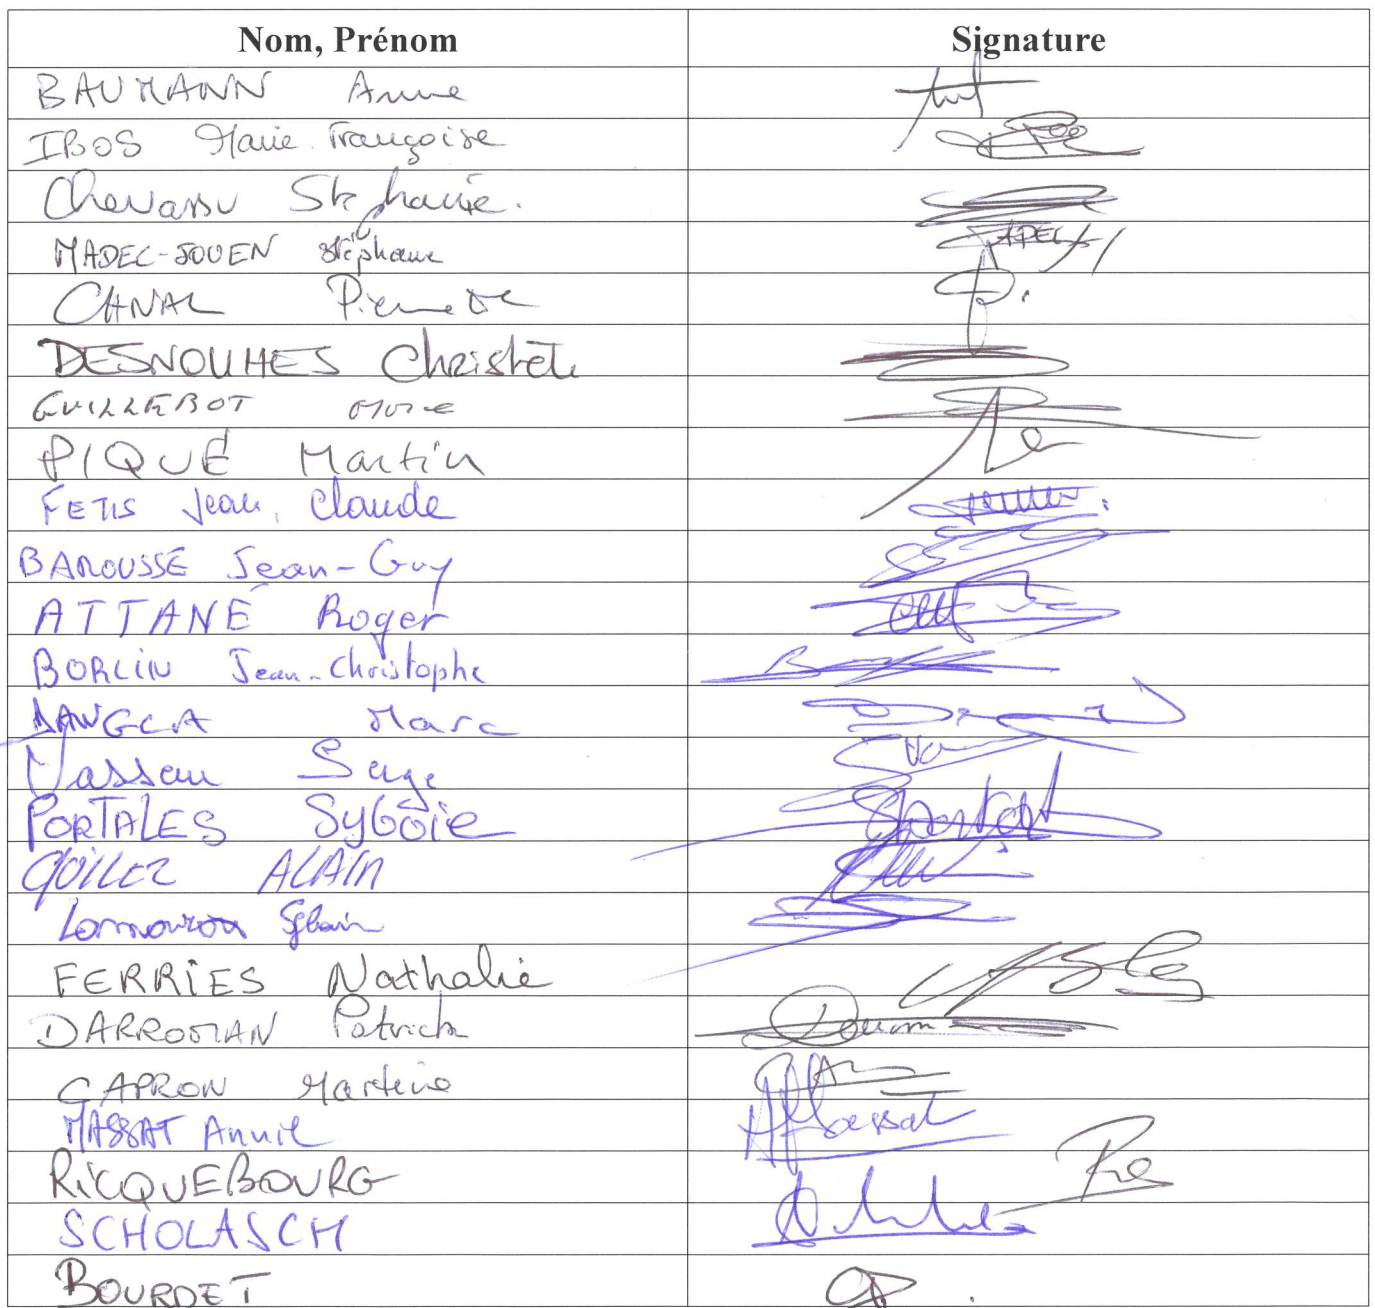 Nom, Prénom Signature
BAUMANN Anne
IBOS Marie Françoise
Chevassu Stéphanie.
MADEC-JOUEN Stéphane
CANAL Pierrette
DESNOUHES Christèle
GUILLEBOT
PIQUÉ Martin
FETIS Jean, Claude
BAROUSSE Jean-Guy
ATTANÉ Roger
BORLIN Jean-Christophe
DANGLA Marc
Vassau Serge
PORTALES Sylvie
QUILEZ ALAIN
FERRIES Nathalie
DARROMAN Patrick
CAPRON Martine
MASSAT Annie Massat
RICQUEBOURG
SCHOLASCH
BOURDET